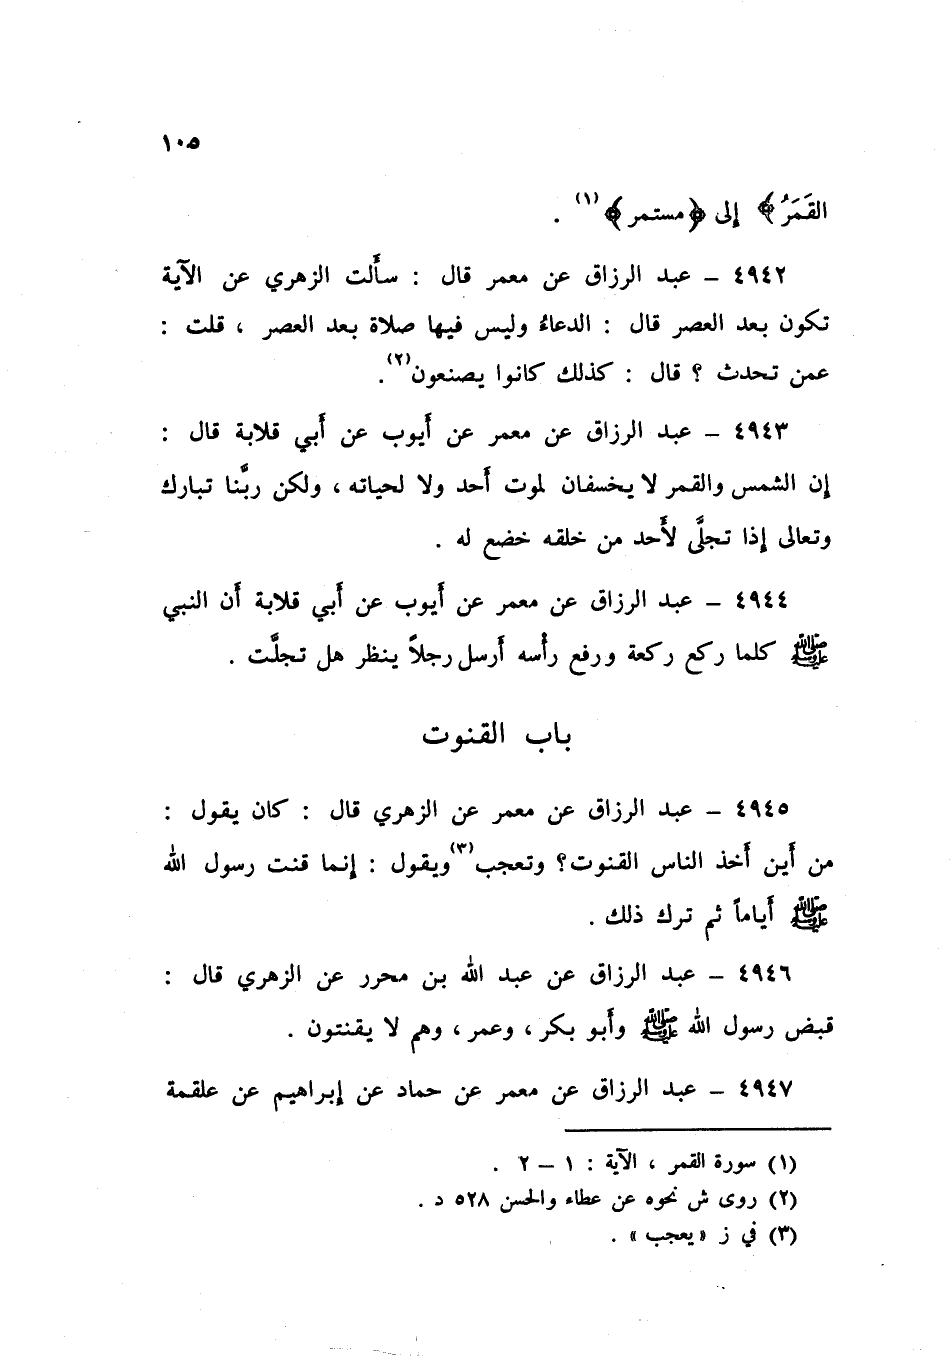 ١٠٥
القَمَرُ﴾ إلى ﴿مستمر﴾(١) .
٤٩٤٢ – عبد الرزاق عن معمر قال : سأَلت الزهري عن الآية
تكون بعد العصر قال : الدعاءُ وليس فيها صلاة بعد العصر ، قلت :
عمن تحدث ؟ قال : كذلك كانوا يصنعون(٢).
٤٩٤٣ – عبد الرزاق عن معمر عن أَيوب عن أَبي قلابة قال :
إن الشمس والقمر لا يخسفان لموت أَحد ولا لحياته ، ولكن ربَّنا تبارك
وتعالى إذا تجلَّى لأَحد من خلقه خضع له .
٤٩٤٤ – عبد الرزاق عن معمر عن أَيوب عن أَبي قلابة أَن النبي
ﷺ كلما ركع ركعة ورفع رأْسه أَرسل رجلاً ينظر هل تجلَّت .
باب القنوت
٤٩٤٥ – عبد الرزاق عن معمر عن الزهري قال : كان يقول :
من أَين أَخذ الناس القنوت؟ وتعجب(٣)ويقول : إنما قنت رسول الله
ﷺ أَياماً ثم ترك ذلك .
٤٩٤٦ – عبد الرزاق عن عبد الله بن محرر عن الزهري قال :
قبض رسول الله ﷺ وأَبو بكر ، وعمر ، وهم لا يقنتون .
٤٩٤٧ – عبد الرزاق عن معمر عن حماد عن إبراهيم عن علقمة
(١) سورة القمر ، الآية : ١ – ٢ .
(٢) روى ش نحوه عن عطاء والحسن ٥٢٨ د .
(٣) في ز «يعجب» .